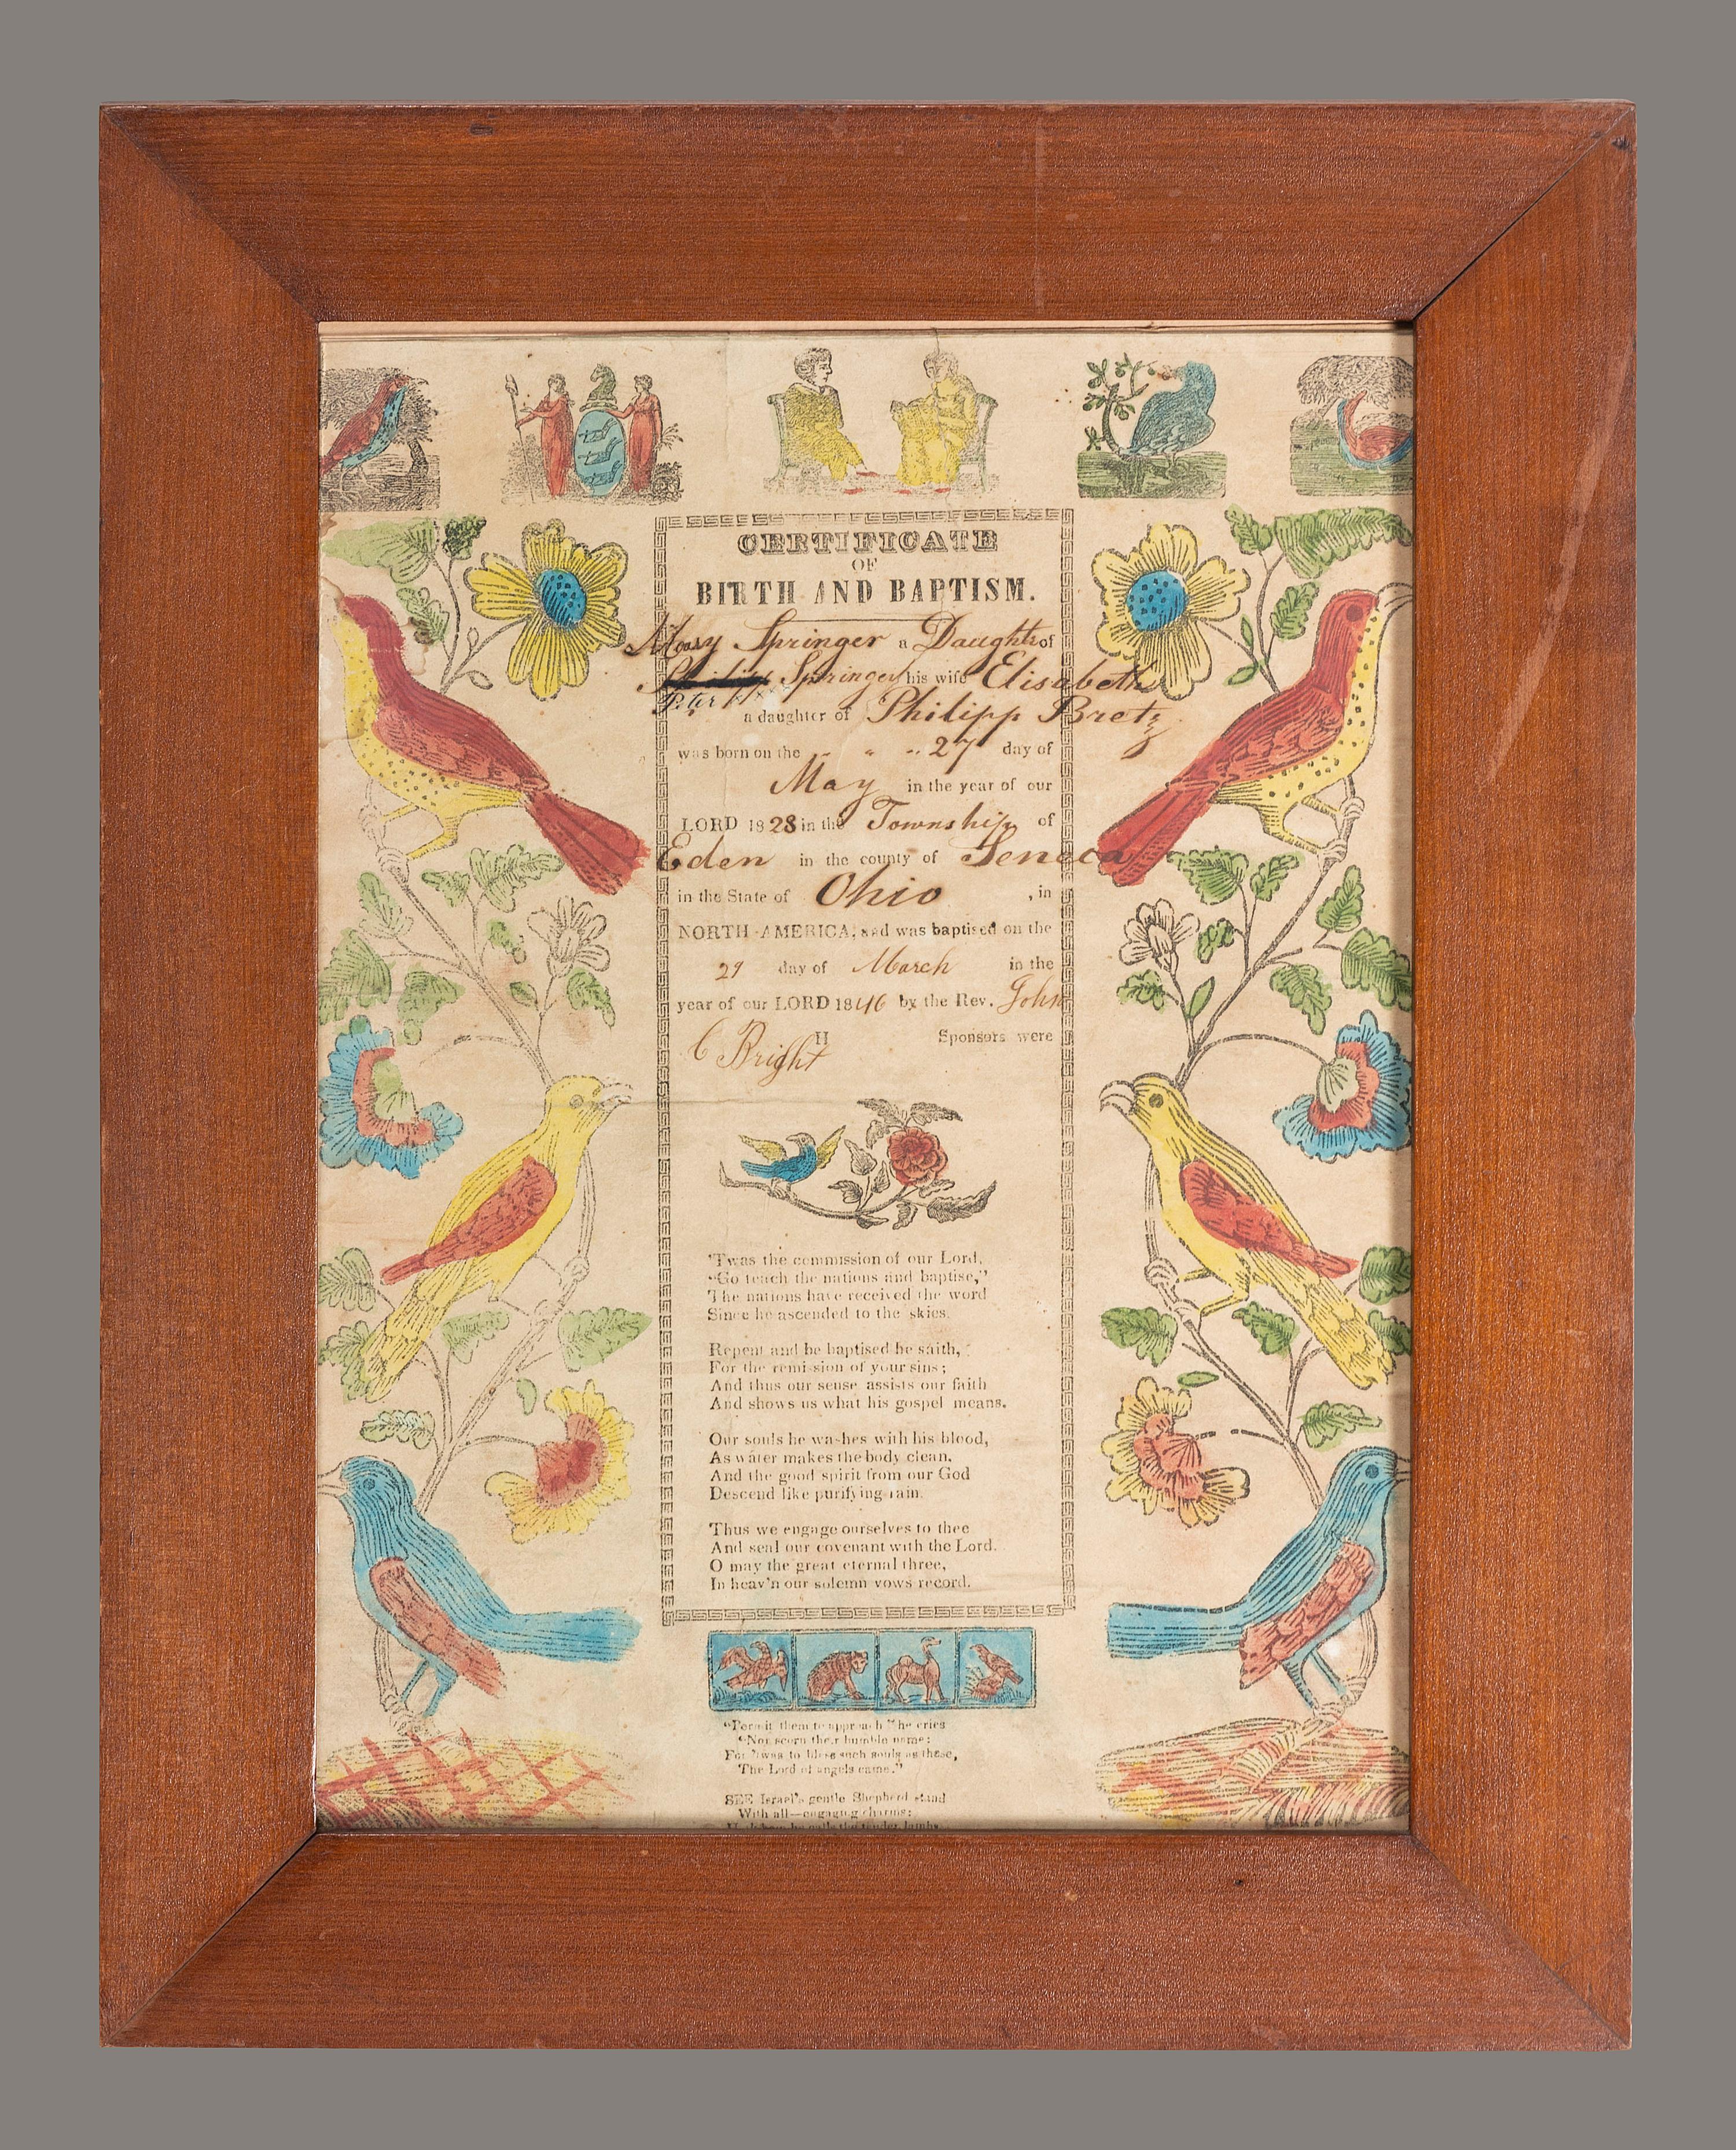 CERTIFICATE
OF
BIRTH AND BAPTISM.
Mary Springer a Daughter of
Springer his wife Elisabeth
Peter
a daughter of Philipp Bretz
was born on the " " " 27 day of
May in the year of our
LORD 1828 in the Township of
Eden in the county of Seneca
in the State of Ohio , in
NORTH-AMERICA, and was baptised on the
29 day of March in the
year of our LORD 1846 by the Rev. John
C Bright H Sponsors were
'Twas the commission of our Lord,
"Go teach the nations and baptise,"
The nations have received the word
Since he ascended to the skies.
Repent and be baptised he saith,
For the remission of your sins;
And thus our sense assists our faith
And shows us what his gospel means.
Our souls he washes with his blood,
As water makes the body clean.
And the good spirit from our God
Descend like purifying rain.
Thus we engage ourselves to thee
And seal our covenant with the Lord.
O may the great eternal three,
In heav'n our solemn vows record.
"Permit them to approach" he cries
"Nor scorn their humble name;
For 'twas to bless such souls as these,
The Lord of angels came."
SEE Israel's gentle Shepherd stand
With all—engaging charms;